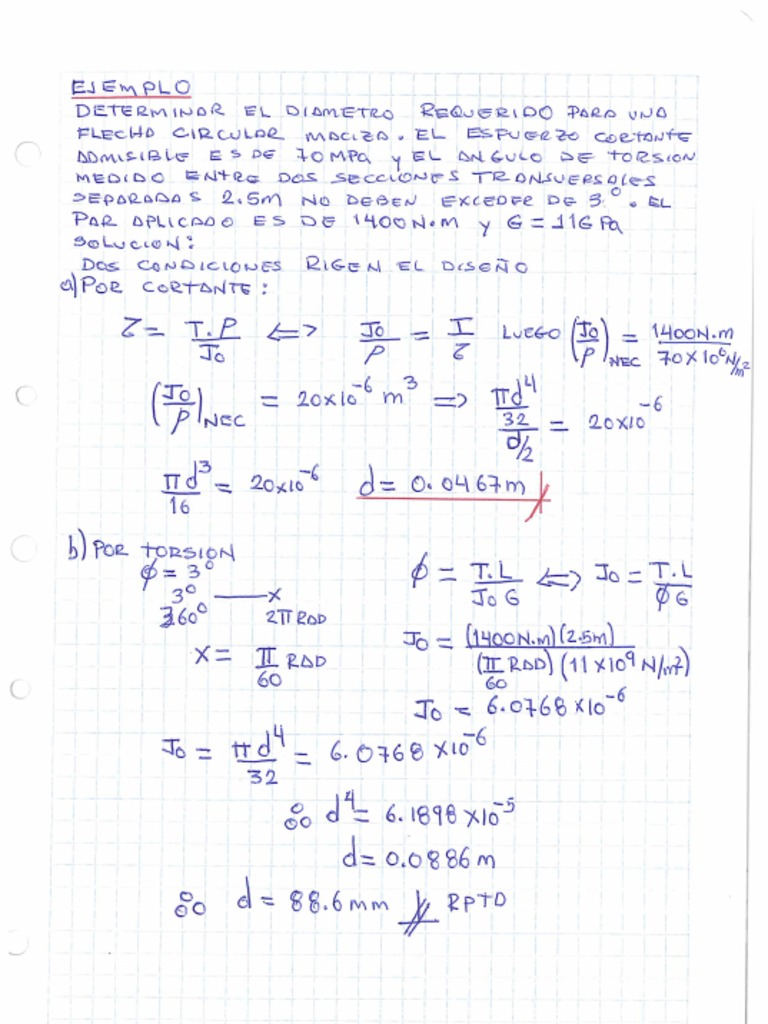 EJEMPLO
DETERMINAR EL DIAMETRO REQUERIDO PARA UNA
FLECHA CIRCULAR MACIZA. EL ESFUERZO CORTANTE
ADMISIBLE ES DE 70MPa y EL ANGULO DE TORSION
MEDIDO ENTRE DOS SECCIONES TRANSVERSALES
SEPARADAS 2.5m NO DEBEN EXCEDER DE 3°. EL
PAR APLICADO ES DE 1400N.m y G = 11GPa
SOLUCION:
DOS CONDICIONES RIGEN EL DISEÑO
a) POR CORTANTE:
τ = T.P/Jo ⇔ Jo/P = T/τ LUEGO (Jo/P)NEC = 1400N.m/70x10⁶N/m²
(Jo/P)NEC = 20x10⁻⁶ m³ ⇒ (πd⁴/32)/(d/2) = 20x10⁻⁶
πd³/16 = 20x10⁻⁶ d = 0.0467m
b) POR TORSION
φ = 3°
3° — x
360° 2π RAD
x = π/60 RAD
φ = T.L/Jo G ⇔ Jo = T.L/φG
Jo = (1400N.m)(2.5m)/(π/60 RAD)(11x10⁹ N/m²)
Jo = 6.0768x10⁻⁶
Jo = πd⁴/32 = 6.0768x10⁻⁶
∴ d⁴ = 6.1898x10⁻⁵
d = 0.0886m
∴ d = 88.6mm RPTA